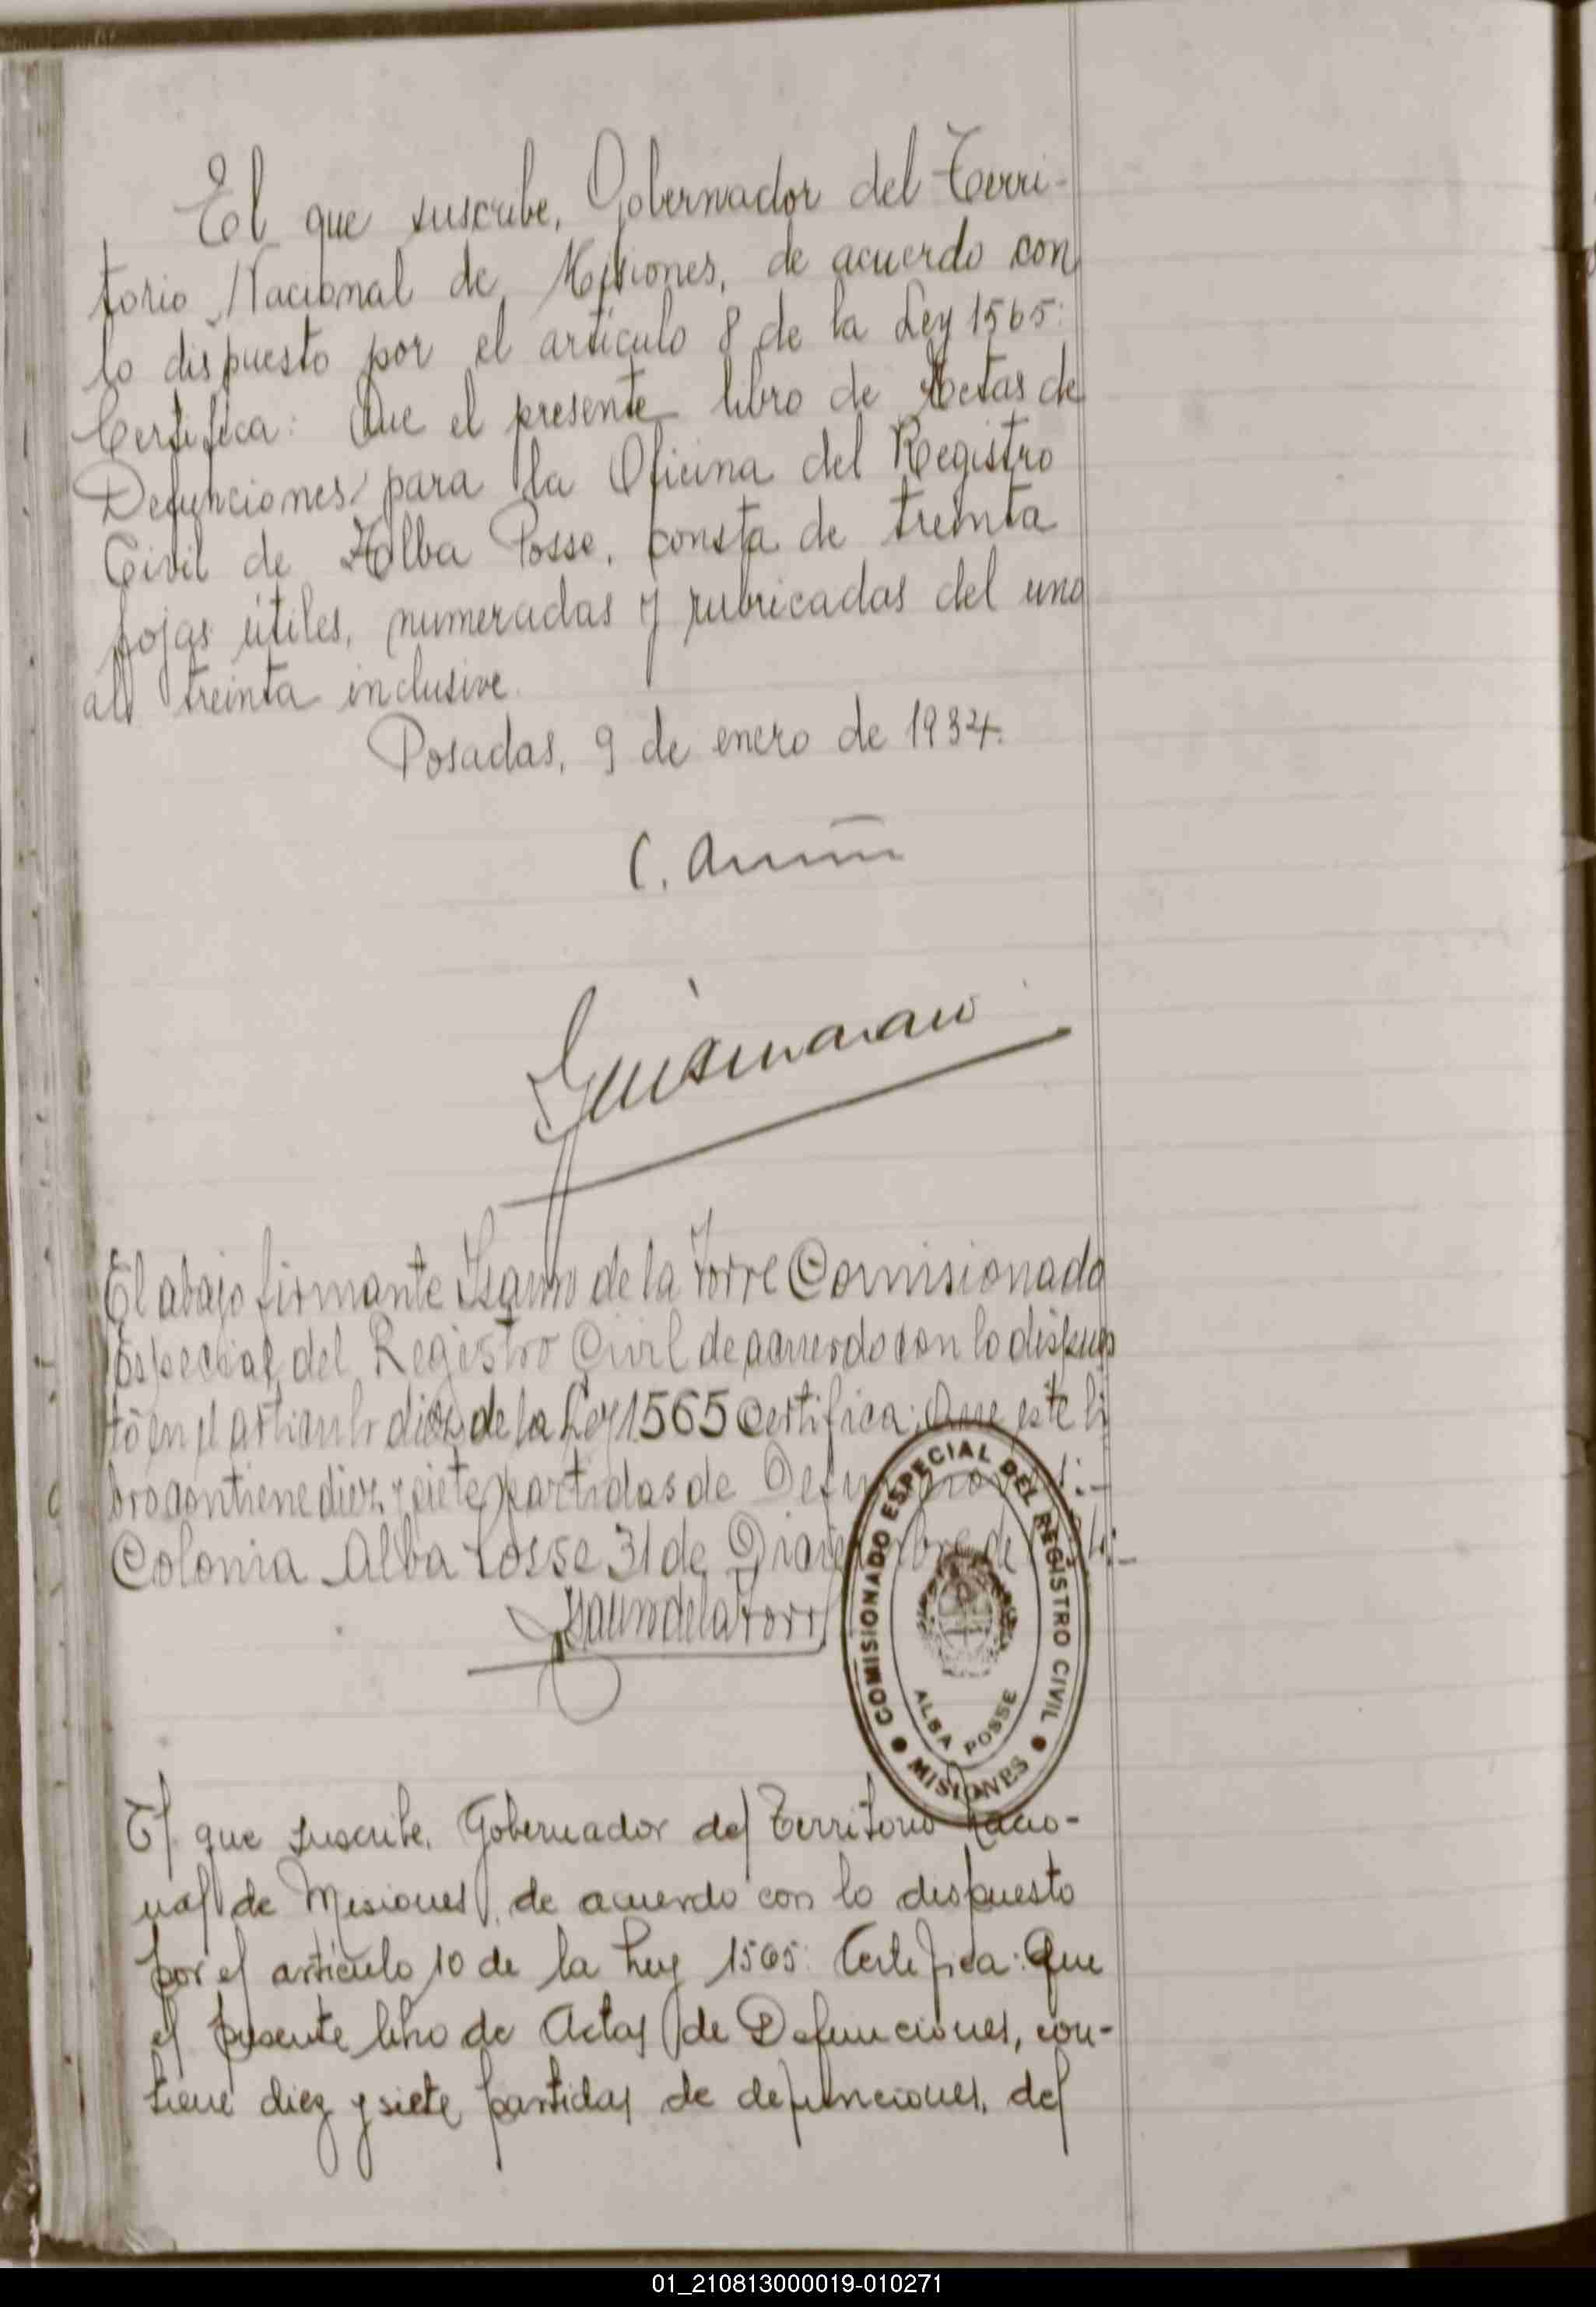 El que suscribe, Gobernador del Terri-
torio Nacional de Misiones, de acuerdo con
lo dispuesto por el artículo 8 de la Ley 1565:
Certifica: Que el presente libro de Actas de
Defunciones para la Oficina del Registro
Civil de Alba Posse, consta de treinta
fojas útiles, numeradas y rubricadas del uno
al treinta inclusive.
Posadas, 9 de enero de 1934.
C.
El abajo firmante Isauro de la Torre Comisionado
Especial del Registro Civil de acuerdo con lo dispues
to en el articulo diez de la Ley 1565 Certifica: Que este li
bro contiene diez y siete partidas de
Colonia Alba Posse 31 de Diciembre de
Isauro de la Torre
COMISIONADO ESPECIAL DEL REGISTRO CIVIL
ALBA POSSE
MISIONES
El que suscribe, Gobernador del Territorio Nacio-
nal de Misiones, de acuerdo con lo dispuesto
por el artículo 10 de la Ley 1565: Certifica: Que
el presente libro de Actas de Defunciones, con-
tiene diez y siete partidas de defunciones, del
01_210813000019-010271